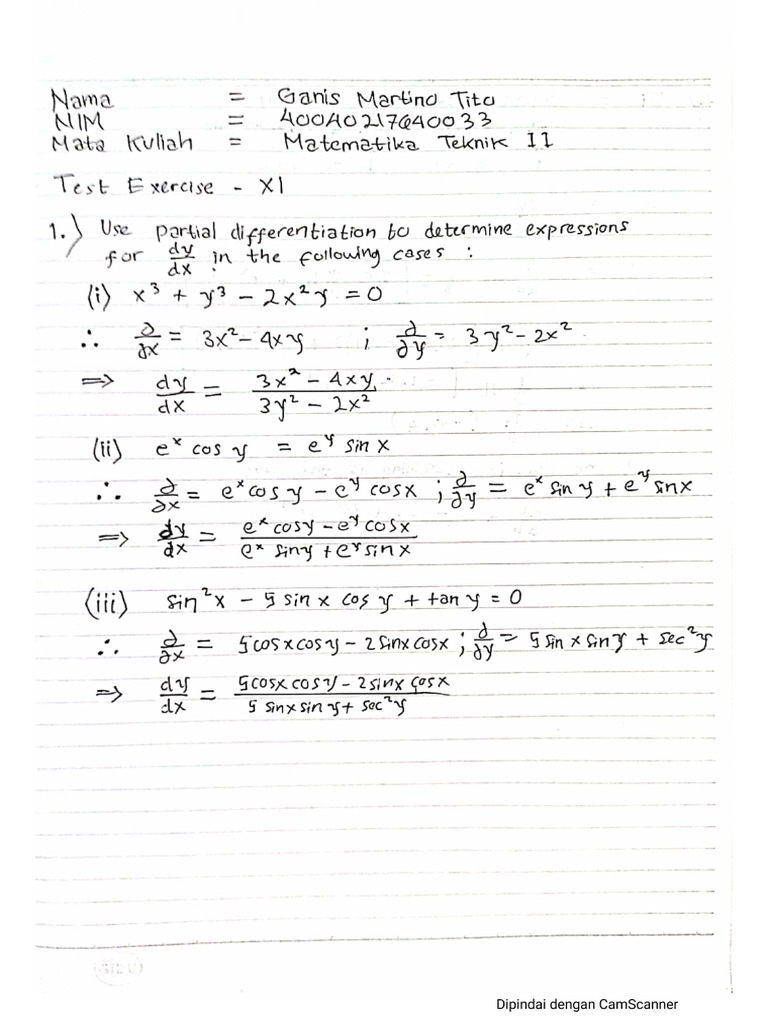 Nama = Ganis Martino Tito
NIM = 40040217640033
Mata Kuliah = Matematika Teknik II
Test Exercise - XI
1.) Use partial differentiation to determine expressions
for dy/dx in the following cases :
(i) x³ + y³ - 2x²y = 0
∴ ∂/∂x = 3x² - 4xy ; ∂/∂y = 3y² - 2x²
⇒ dy/dx = (3x² - 4xy)/(3y² - 2x²)
(ii) eˣ cos y = eʸ sin x
∴ ∂/∂x = eˣ cos y - eʸ cos x ; ∂/∂y = eˣ sin y + eʸ sin x
⇒ dy/dx = (eˣ cos y - eʸ cos x)/(eˣ sin y + eʸ sin x)
(iii) sin²x - 5 sin x cos y + tan y = 0
∴ ∂/∂x = 5 cos x cos y - 2 sin x cos x ; ∂/∂y = 5 sin x sin y + sec²y
⇒ dy/dx = (5 cos x cos y - 2 sin x cos x)/(5 sin x sin y + sec²y)
Dipindai dengan CamScanner